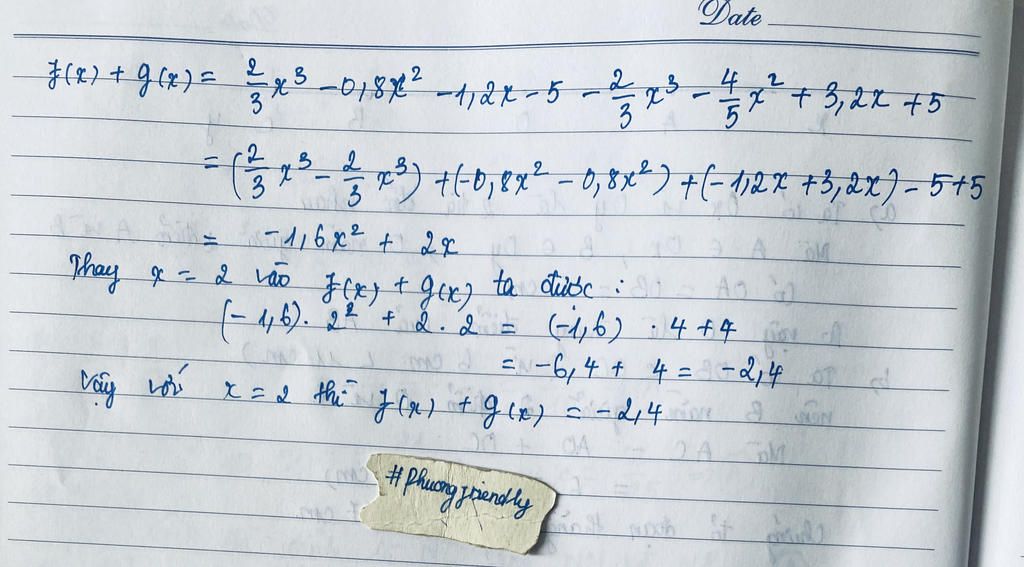 Date
f(x) + g(x) = 2/3 x³ - 0,8x² - 1,2x - 5 - 2/3 x³ - 4/5 x² + 3,2x + 5
= (2/3 x³ - 2/3 x³) + (-0,8x² - 0,8x²) + (-1,2x + 3,2x) - 5 + 5
= -1,6x² + 2x
Thay x = 2 vào f(x) + g(x) ta được :
(-1,6). 2² + 2 . 2 = (-1,6) . 4 + 4
= -6,4 + 4 = -2,4
Vậy với x = 2 thì f(x) + g(x) = -2,4
#phuongfriendly